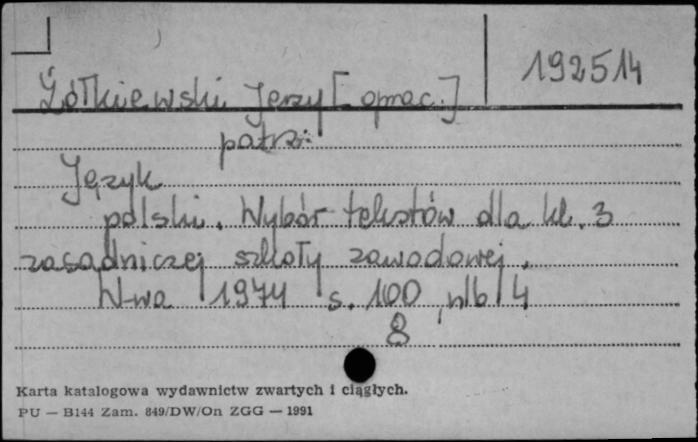 192514
Żółkiewski Jerzy [oprac.]
patrz:
Język
polski. Wybór tekstów dla kl. 3
zasadniczej szkoły zawodowej.
W-wa 1974 s. 100, nlb 4
8
Karta katalogowa wydawnictw zwartych i ciągłych.
PU — B144 Zam. 849/DW/On ZGG — 1991